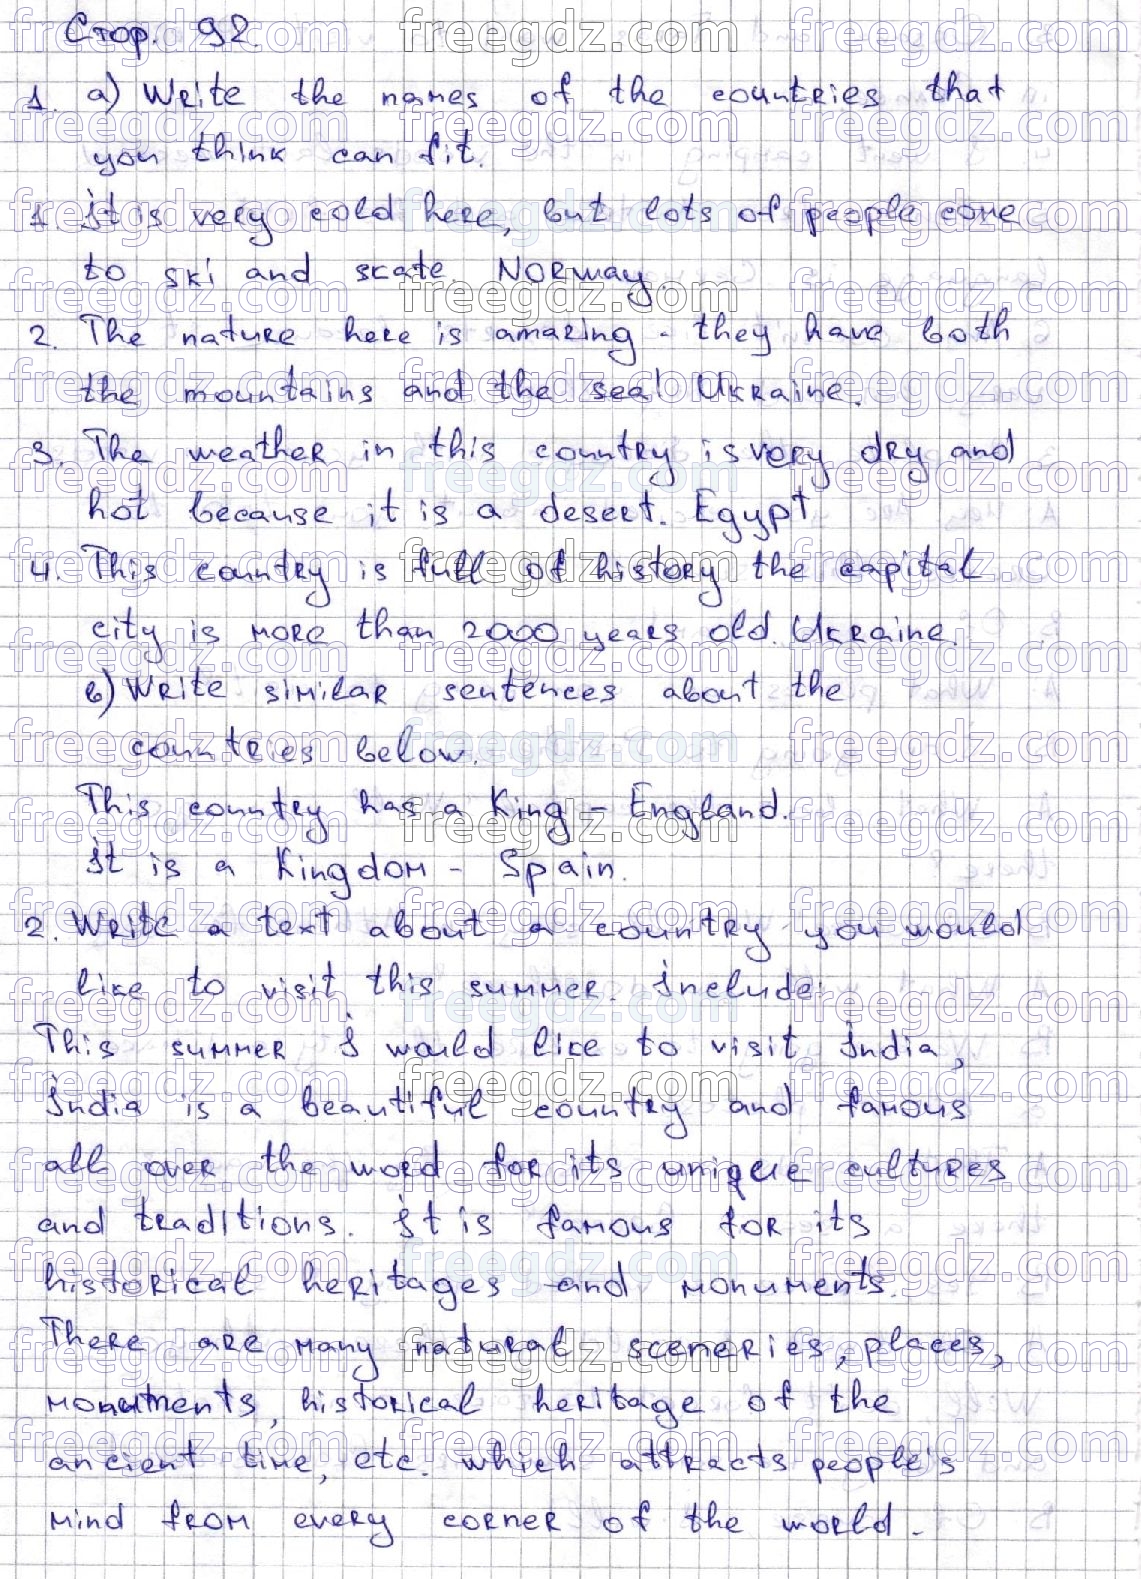 Стор. 92.
1. a) Write the names of the countries that
you think can fit.
1. It is very cold here, but lots of people come
to ski and skate. Norway.
2. The nature here is amazing - they have both
the mountains and the sea! Ukraine.
3. The weather in this country is very dry and
hot because it is a desert. Egypt
4. This country is full of history the capital
city is more than 2000 years old. Ukraine.
b) Write similar sentences about the
countries below.
This country has a King - England.
It is a Kingdom - Spain.
2. Write a text about a country you would
like to visit this summer. Include:
This summer I would like to visit India,
India is a beautiful country and famous
all over the word for its unique cultures
and traditions. It is famous for its
historical heritages and monuments.
There are many natural sceneries, places,
monuments, historical heritage of the
ancient time, etc. which attracts people's
mind from every corner of the world.
freegdz.com